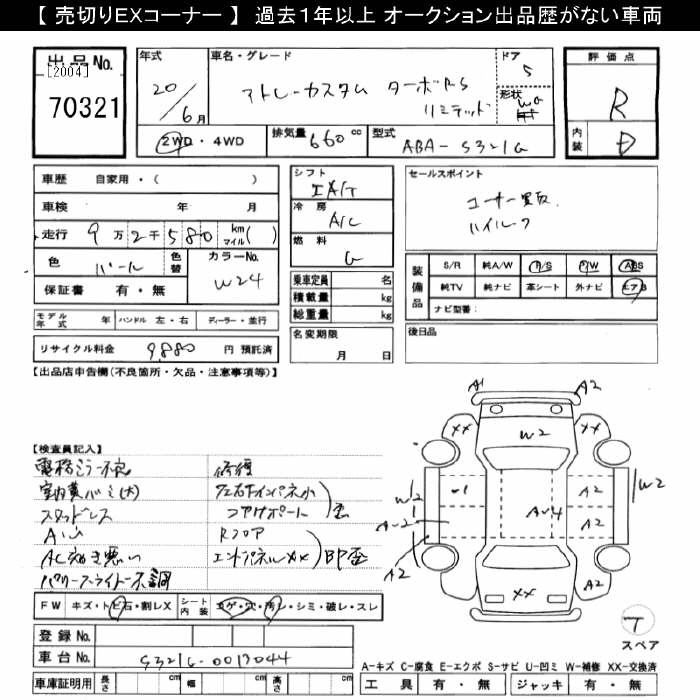 【 売切りEXコーナー 】 過去1年以上 オークション出品歴がない車両
出品No.
[2004]
70321
年式
20/6月
車名・グレード
アトレーカスタム ターボRS
リミテッド
ドア
5
形状
WG
2WD・4WD
排気量 660 cc
型式 ABA-S321G
評価点
R
内装
D
車歴 自家用・( )
車検 年 月
走行 9万2千580 km マイル ( )
色 パール 色替
カラーNo. W24
保証書 有・無
シフト
IAT
冷房
A/C
燃料
G
乗車定員 名
積載量 kg
総重量 kg
セールスポイント
コーナー買取
ハイルーフ
装備品
S/R 純A/W P/S P/W ABS
純TV 純ナビ 革シート 外ナビ エアB
ナビ型番:
モデル年式 年 ハンドル 左・右 ディーラー・並行
名変期限
月 日
後日品
リサイクル料金 9,880 円 預託済
【出品店申告欄(不良箇所・欠品・注意事項等)】
A1 A2
XX XX
W2
W2 -1 A2 W2
A-2 A-4 A2
A2 A2
XX
【検査員記入】
電格ミラー不良
室内黄バミ(大)
スタッドレス
A小
AC効き悪い
パワースライドドアー不調
修復
左右インパネ小
コアサポート
歪
Rフロア
エンドパネルXX
BP歪
FW キズ・トビ石・割レX
シート内装 コゲ・穴・汚レ・シミ・破レ・スレ
T
スペア
登録No.
車台No. S321G-0013044
A-キズ C-腐食 E-エクボ S-サビ U-凹ミ W-補修 XX-交換済
車庫証明用 長さ cm 幅 cm 高さ cm
工具 有・無 ジャッキ 有・無